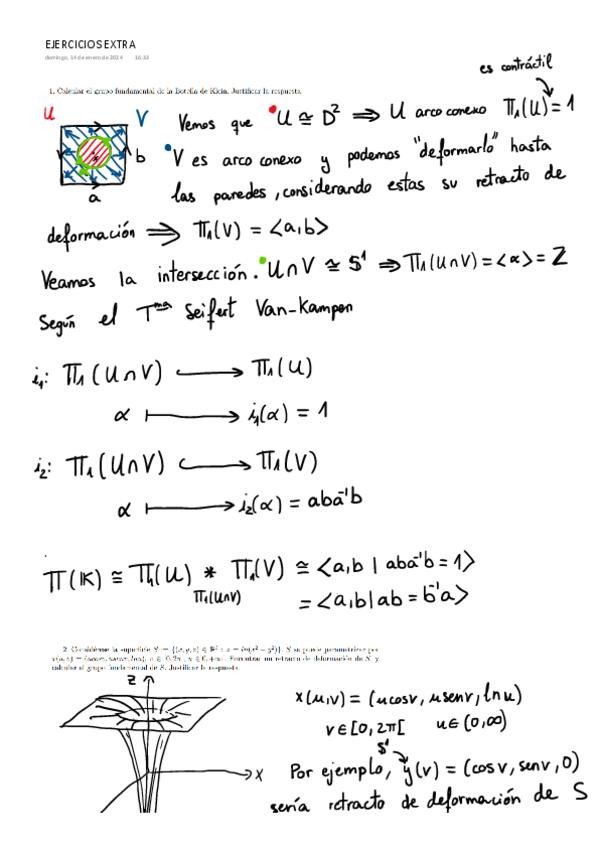 EJERCICIOS EXTRA
domingo, 14 de enero de 2024 16:33
es contráctil
1. Calcular el grupo fundamental de la Botella de Klein. Justificar la respuesta.
U V b a
Vemos que •U ≅ D² ⟹ U arco conexo π₁(U)=1
•V es arco conexo y podemos "deformarlo" hasta
las paredes, considerando estas su retracto de
deformación ⟹ π₁(V) = <a,b>
Veamos la intersección. •U∩V ≅ S¹ ⟹ π₁(U∩V)=<α>=Z
Según el Tᵐᵃ Seifert Van-Kampen
i₁: π₁(U∩V) ⟶ π₁(U)
α ⟼ i₁(α) = 1
i₂: π₁(U∩V) ⟶ π₁(V)
α ⟼ i₂(α) = aba⁻¹b
π(K) ≅ π₁(U) * π₁(V) ≅ <a,b | aba⁻¹b = 1>
π₁(U∩V)
= <a,b|ab = b⁻¹a>
2. Considérese la superficie S = {(x, y, z) ∈ ℝ³ : z = ln(x² + y²)}. S se puede parametrizar por
calcular el grupo fundamental de S. Justificar la respuesta.
z
x
x(u,v) = (ucosv, usenv, ln u)
v∈[0,2π[ u∈(0,∞)
S¹
Por ejemplo, y(v) = (cosv, senv, 0)
sería retracto de deformación de S